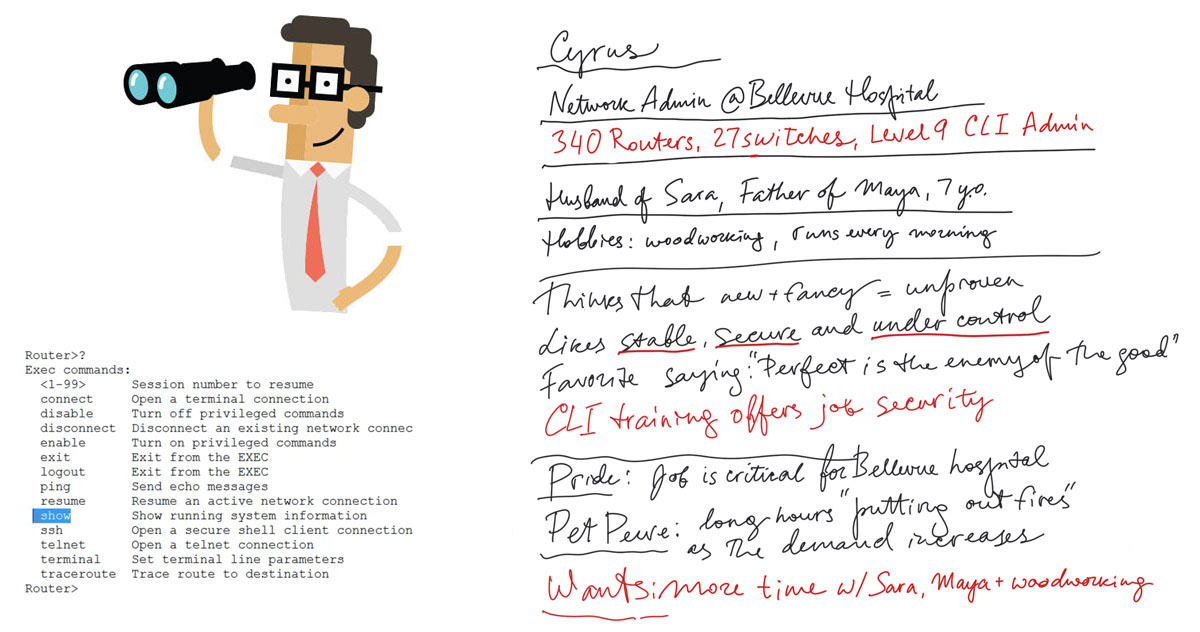 Cyrus
Network Admin @Bellevue Hospital
340 Routers, 27 switches, Level 9 CLI Admin
Husband of Sara, Father of Maya, 7 y.o.
Hobbies: woodworking, runs every morning
Thinks that new + fancy = unproven
Likes stable, secure and under control
Favorite saying: "Perfect is the enemy of the good"
CLI training offers job security
Pride: Job is critical for Bellevue hospital
Pet Peeve: long hours "putting out fires"
as the demand increases
Wants: more time w/ Sara, Maya + woodworking
Router>?
Exec commands:
<1-99> Session number to resume
connect Open a terminal connection
disable Turn off privileged commands
disconnect Disconnect an existing network connec
enable Turn on privileged commands
exit Exit from the EXEC
logout Exit from the EXEC
ping Send echo messages
resume Resume an active network connection
show Show running system information
ssh Open a secure shell client connection
telnet Open a telnet connection
terminal Set terminal line parameters
traceroute Trace route to destination
Router>